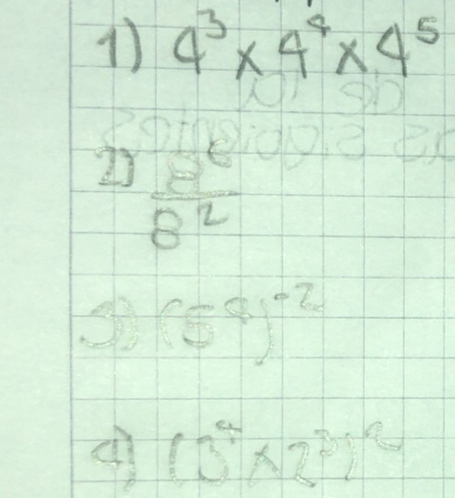 1) 4³ x 4⁴ x 4⁵
2) 8⁶/8²
3) (5⁴)⁻²
4) (3⁴ x 2³)²